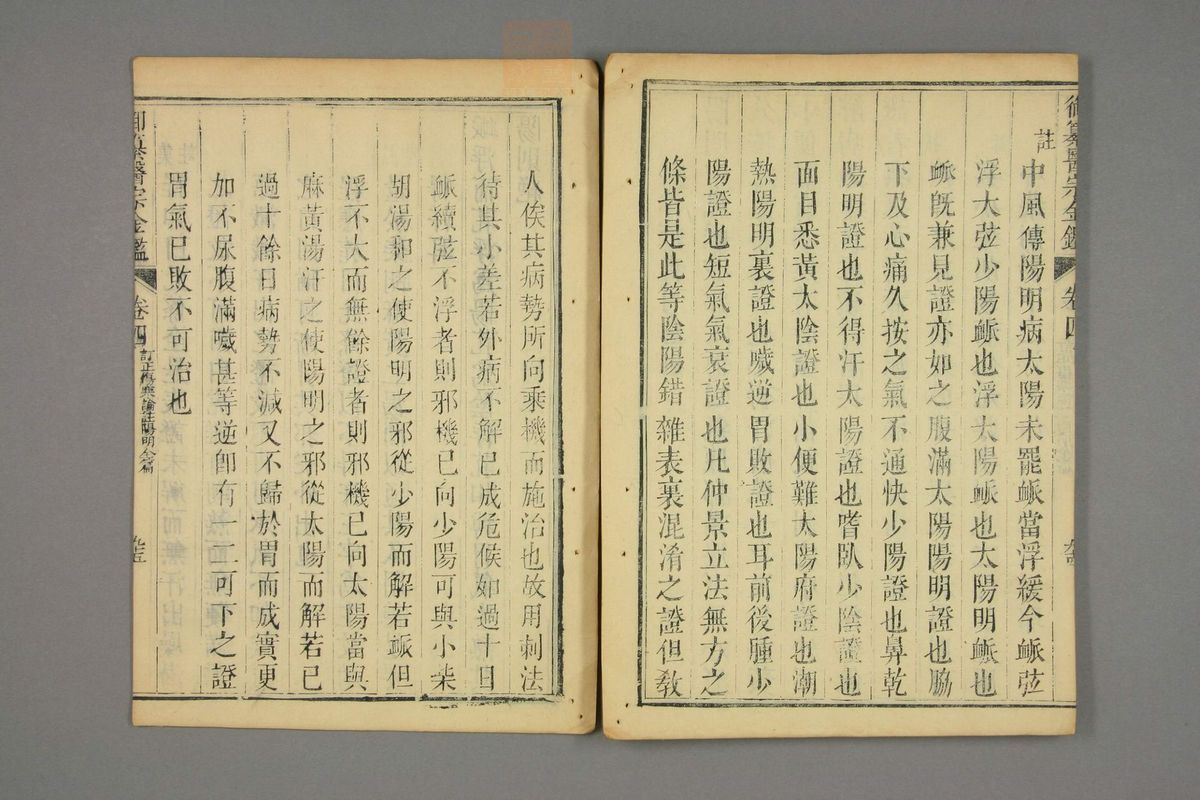 御纂醫宗金鑑 卷四
註
中風傳陽明病太陽未罷脈當浮緩今脈弦
浮大弦少陽脈也浮太陽脈也大陽明脈也
脈旣兼見證亦如之腹滿太陽陽明證也脇
下及心痛久按之氣不通快少陽證也鼻乾
陽明證也不得汗太陽證也嗜臥少陰證也
面目悉黃太陰證也小便難太陽府證也潮
熱陽明裏證也噦逆胃敗證也耳前後腫少
陽證也短氣氣衰證也凡仲景立法無方之
條皆是此等陰陽錯雜表裏混淆之證但敎
人俟其病勢所向乘機而施治也故用刺法
待其小差若外病不解已成危候如過十日
脈續弦不浮者則邪機已向少陽可與小柴
胡湯和之使陽明之邪從少陽而解若脈但
浮不大而無餘證者則邪機已向太陽當與
麻黃湯汗之使陽明之邪從太陽而解若已
過十餘日病勢不減又不歸於胃而成實更
加不尿腹滿噦甚等逆卽有一二可下之證
胃氣已敗不可治也
御纂醫宗金鑑 卷四 訂正傷寒論註陽明全篇 九五